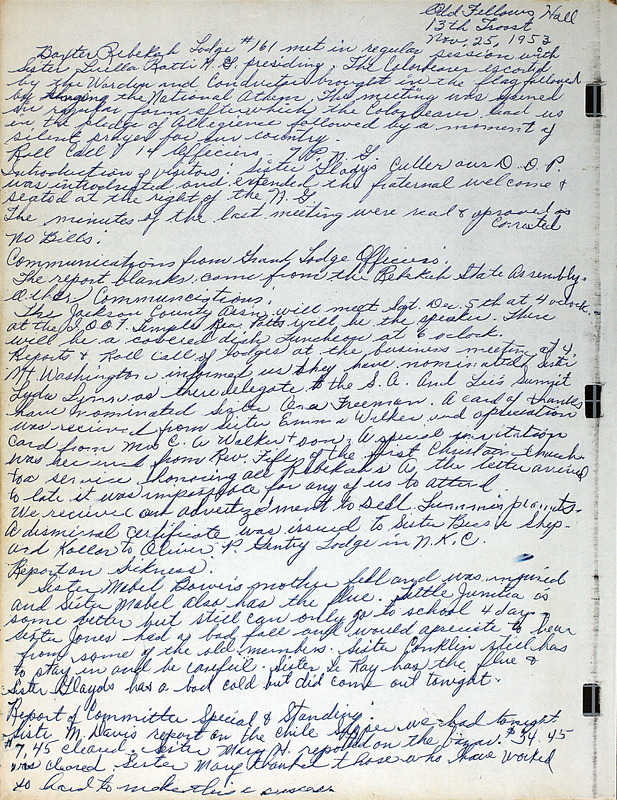 Odd Fellows Hall
13th Troost
Nov. 25, 1953
Baxter Rebekah Lodge #161 met in regular session with
Sister Luella Batti N.G. presiding. The Colorbearer escorted
by the Warden and Conductor brought in the flag followed
by singing the National Athem. The meeting was opened
in regular form after which the Colorbearer lead us
in the pledge of Allegience followed by a moment of
silent prayer for our country.
Roll Call 14 Officiers. 7 P.N.G.
Introduction of visitors: Sister Gladys Culler our D.D.P.
was introducted and extended the fraternal welcome &
seated at the right of the N.G.
The minutes of the last meeting were real & aproved as
Corrected
No Bills:
Communications from Grand Lodge Officers:
The report blanks came from the Rebekah State Assembly.
Other Communcations:
The Jackson County Assn. will meet Sat. Dec. 5th at 4 oclock
at the I.O.O.F. Temple Rev. Potts will be the speaker. There
will be a covered dish Luncheon at 6 oclock.
Reports & Roll call of Lodges at the business meeting at 4,
Mt. Washington informed us they have nominated Sister
Lyda Lynn as there delegate to the S.A. And Lee's Summit
have nominated sister Ona Freeman. A card of thanks
was recieved from Sister Emma Walker and apreciation
card from Mrs C. A Walker & son. A special invitation
was recieved from Rev. Fifey of the First Christain Church
to a service honoring all Rebekah's &, the letter arrived
to late it was impossible for any of us to attend
We received an advertizement to sell
A dismissal certificate was issued to Sister Bessie Ship-
and Koller to Oliver P. Gentry Lodge in N.K.C.
Report on Sickness:
Sister Mabel Bower's mother fell and was injured
and Sister Mabel also has the flue. Little Junita is
some better but still can only go to school 4 days.
Sister Jones had a bad fall and would apreciate to hear
from some of the old members. Sister Conklin still has
to stay in and be carefull. Sister Le Ray has the flue &
Sister Gladys has a bad cold but did come out tonight.
Report of Committee Special & Standing:
Sister M. Davis report on the chile supper we had tonight
$7.45 cleared. Sister Mary H. reported on the bazaar. $34.45
was cleared Sister Mary thanked those who have worked
so hard to make this a success